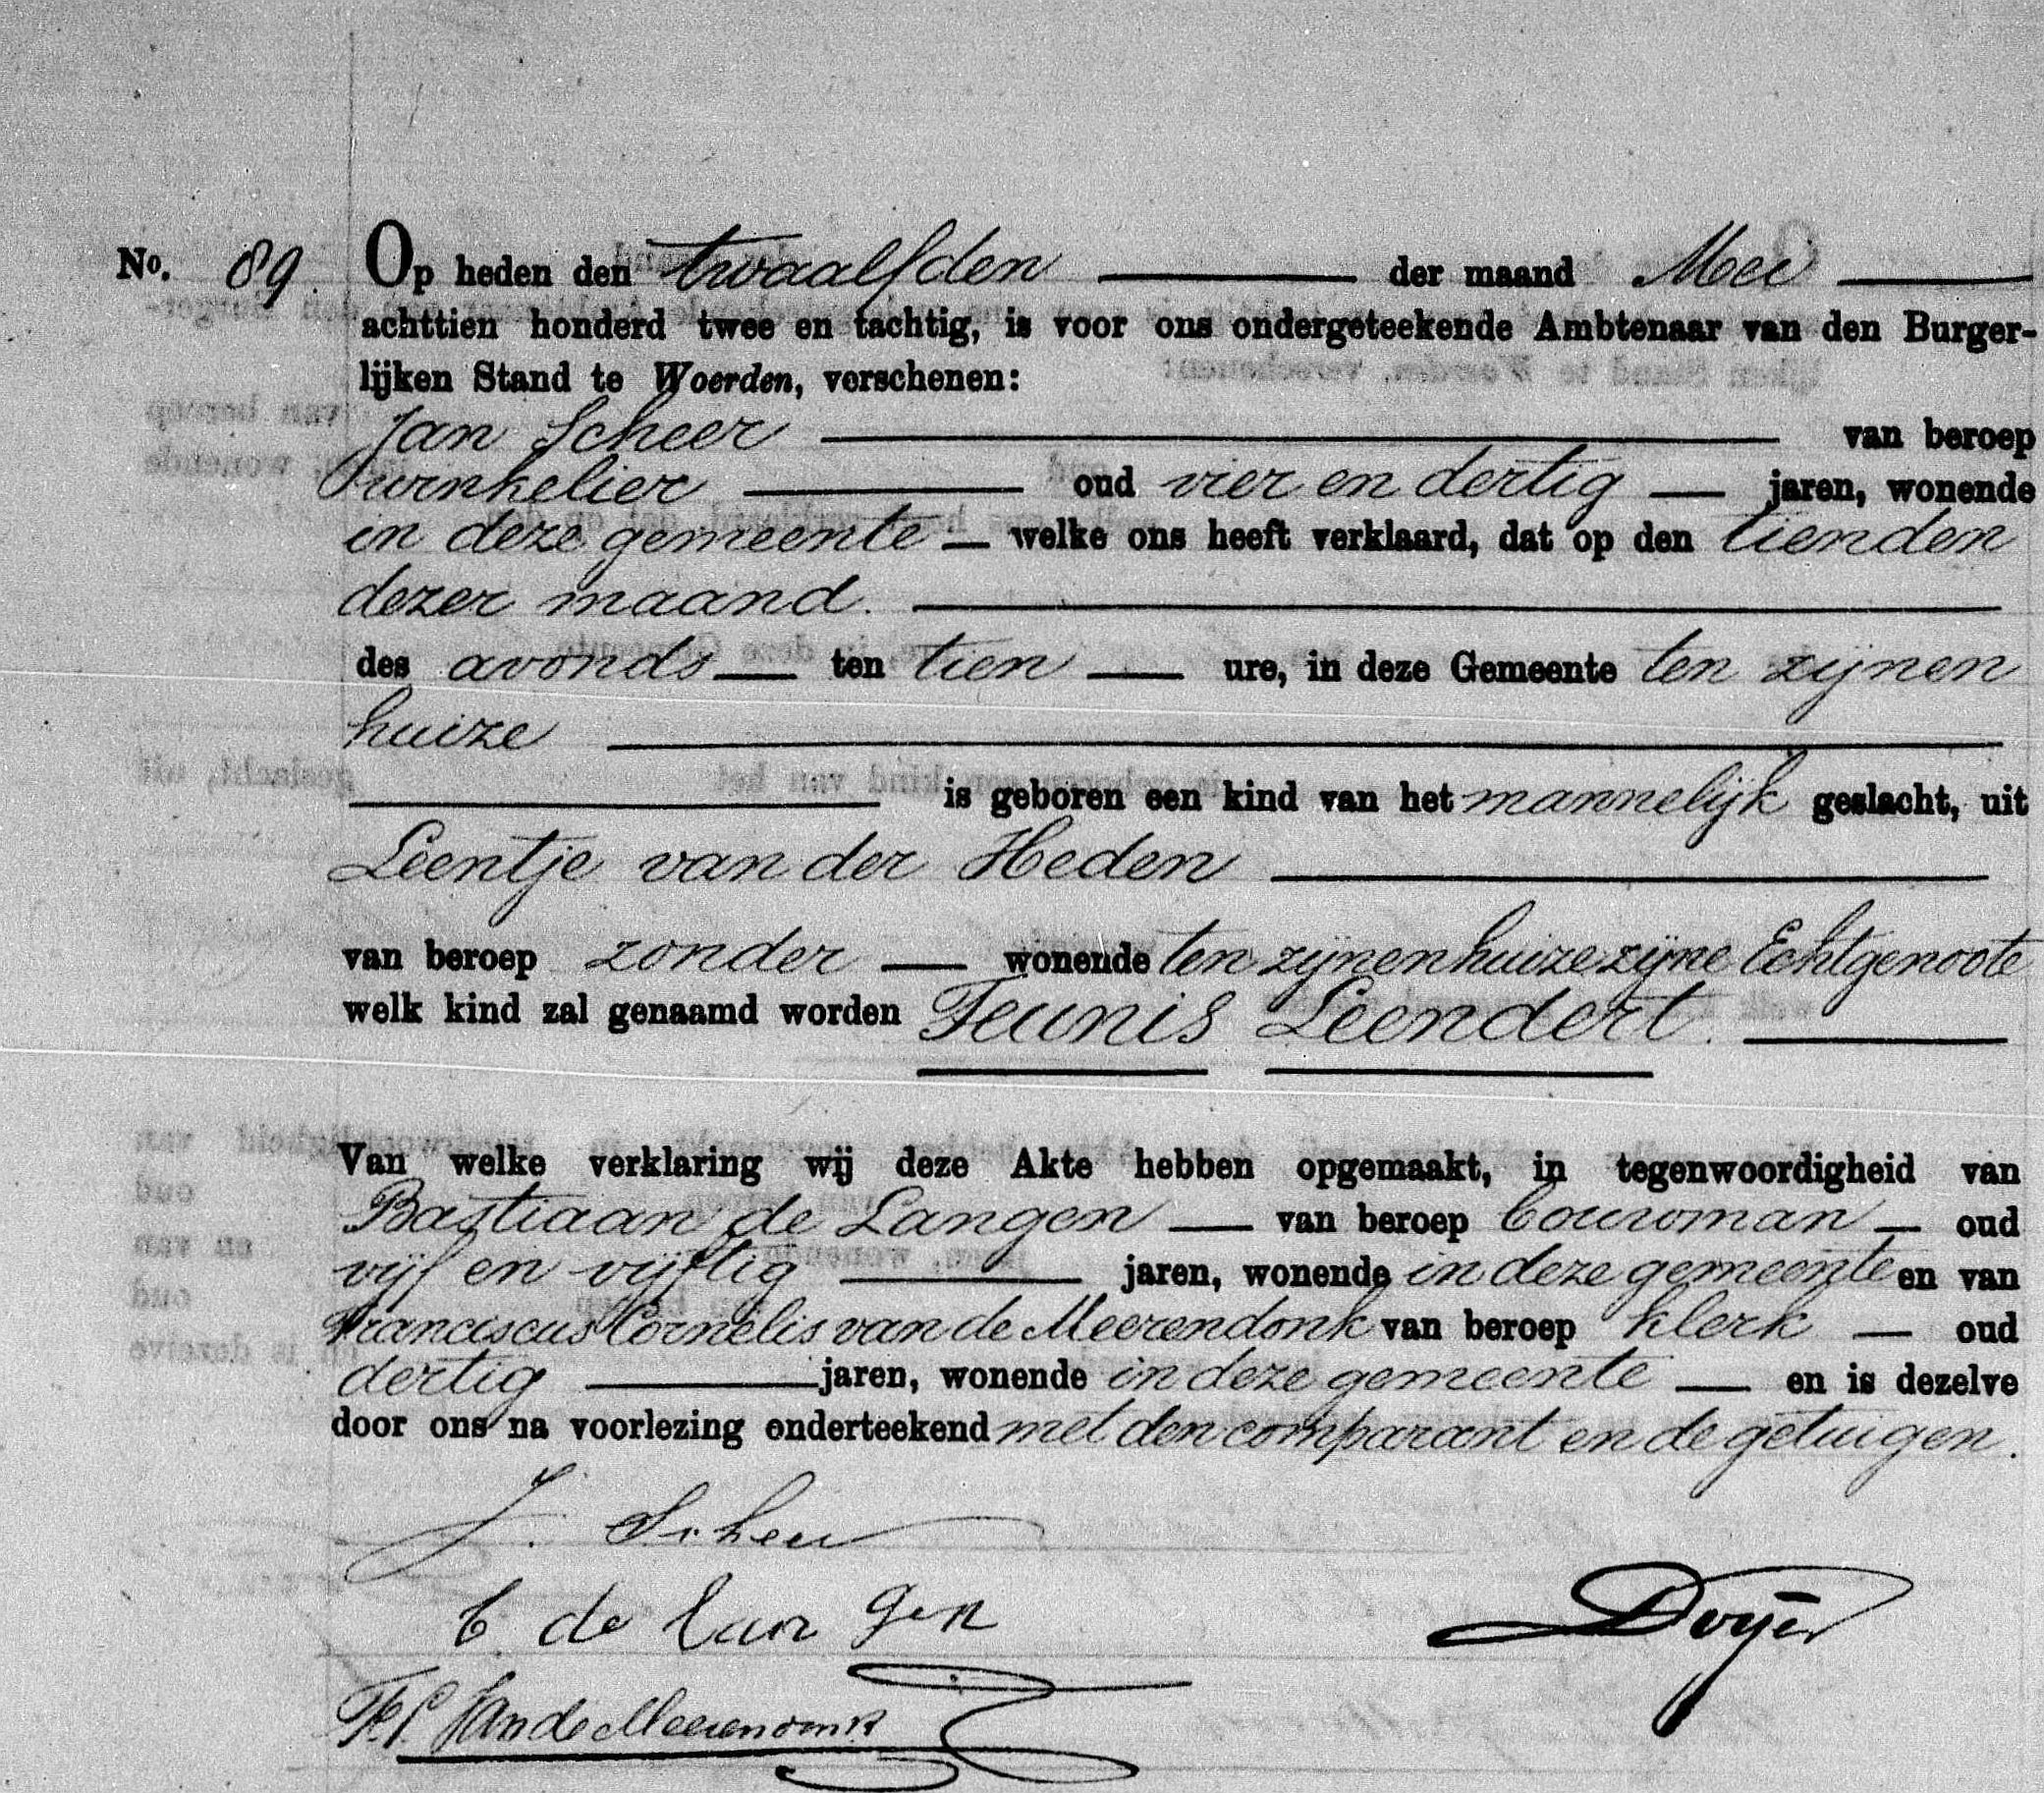 No. 89. Op heden den twaalfden der maand Mei
achttien honderd twee en tachtig, is voor ons ondergeteekende Ambtenaar van den Burger-
lijken Stand te Woerden, verschenen:
Jan Scheer van beroep
winkelier oud vier en dertig jaren, wonende
in deze gemeente welke ons heeft verklaard, dat op den tienden
dezer maand.
des avonds ten tien ure, in deze Gemeente ten zijnen
huize
is geboren een kind van het mannelijk geslacht, uit
Leentje van der Heden
van beroep zonder wonende ten zijnen huize zijne Echtgenoote
welk kind zal genaamd worden Teunis Leendert.
Van welke verklaring wij deze Akte hebben opgemaakt, in tegenwoordigheid van
Bastiaan de Langen van beroep bouwman oud
vijf en vijftig jaren, wonende in deze gemeente en van
Franciscus Cornelis van de Meerendonk van beroep klerk oud
dertig jaren, wonende in deze gemeente en is dezelve
door ons na voorlezing onderteekend met den comparant en de getuigen.
J. Scheer
B de Lan gen
Doyer
F.C. Van de Meerendonk